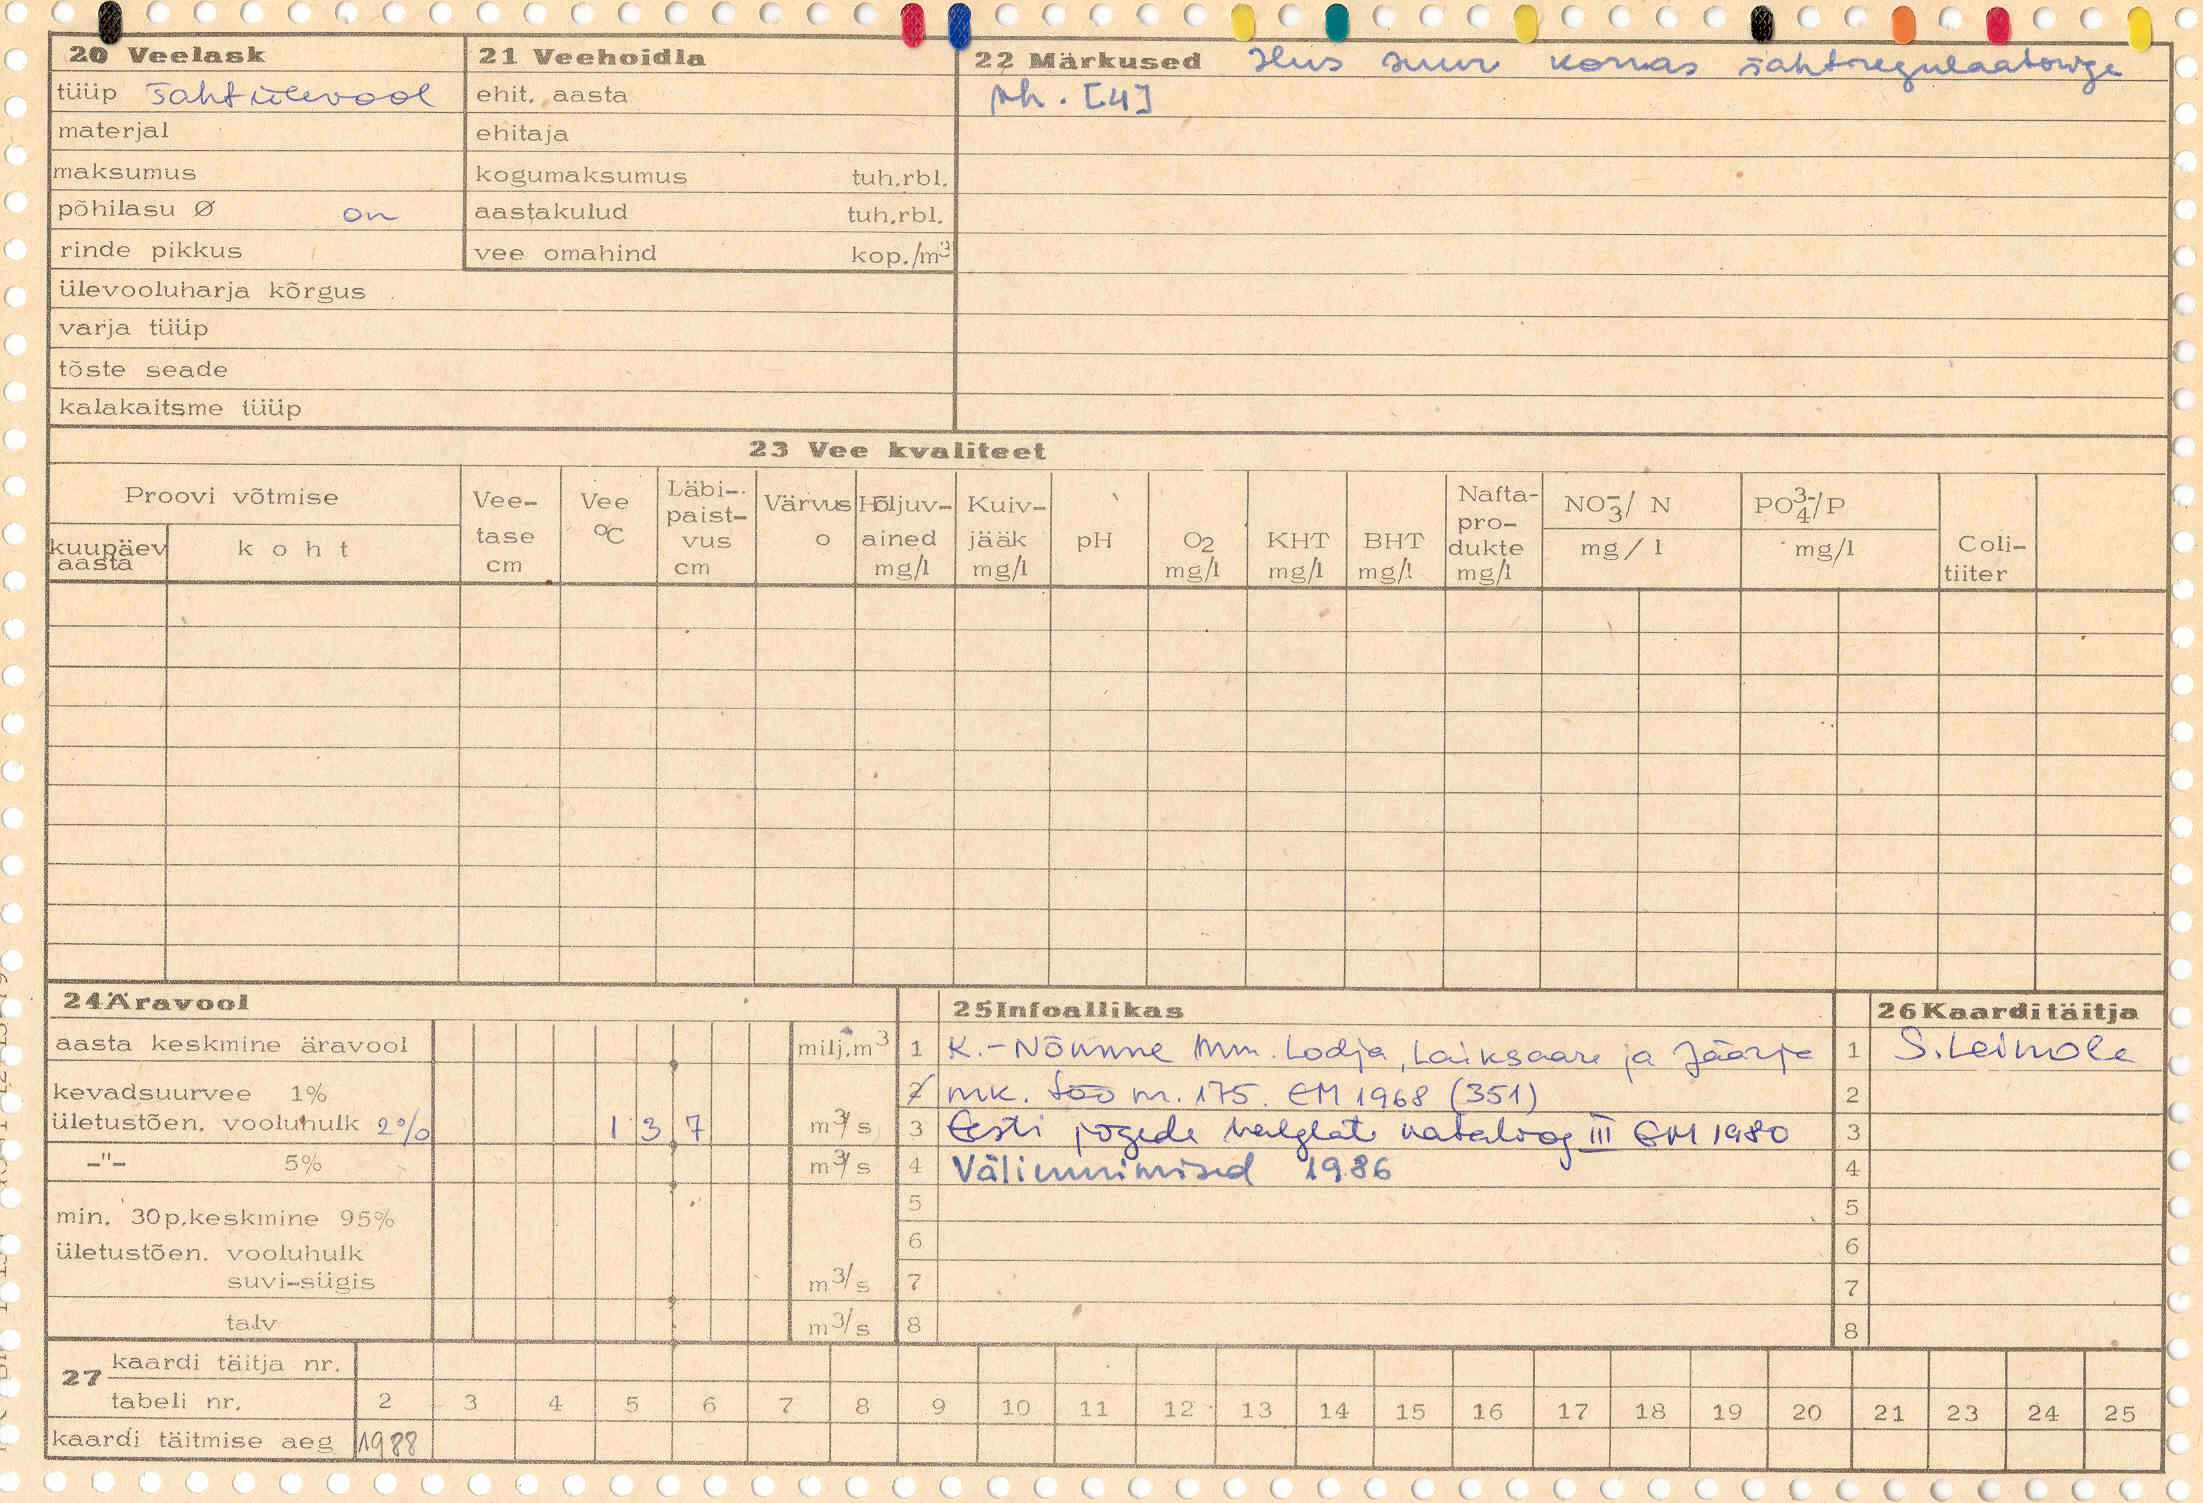 20 Veelask
tüüp šahtülevool
materjal
maksumus
põhilasu Ø on
rinde pikkus
ülevooluharja kõrgus
varja tüüp
tõste seade
kalakaitsme tüüp
21 Veehoidla
ehit. aasta
ehitaja
kogumaksumus tuh.rbl.
aastakulud tuh.rbl.
vee omahind kop./m³
22 Märkused Ilus suur korras šahtregulaatoriga
ph. [4]
23 Vee kvaliteet
Proovi võtmise
kuupäev aasta
koht
Vee-
tase
cm
Vee
°C
Läbi-
paist-
vus
cm
Värvus
o
Hõljuv-
ained
mg/l
Kuiv-
jääk
mg/l
pH
O2
mg/l
KHT
mg/l
BHT
mg/l
Nafta-
pro-
dukte
mg/l
NO₃⁻/ N
mg/l
PO₄³⁻/P
mg/l
Coli-
tiiter
24 Äravool
aasta keskmine äravool milj.m³
kevadsuurvee 1%
ületustõen. vooluhulk 2% 1 3 7 m³/s
-"- 5% m³/s
min. 30p.keskmine 95%
ületustõen. vooluhulk
suvi-sügis m³/s
talv m³/s
25 Infoallikas
1 K.-Nõmme mm. Lodja, Laiksaare ja Jäärja
2 mk. töö nr. 175. EM 1968 (351)
3 Eesti jõgede valglate kataloog III EM 1980
4 Väliuurimised 1986
5
6
7
8
26 Kaardi täitja
1 S. Leimola
2
3
4
5
6
7
8
27 kaardi täitja nr.
tabeli nr. 2 3 4 5 6 7 8 9 10 11 12 13 14 15 16 17 18 19 20 21 23 24 25
kaardi täitmise aeg 1988